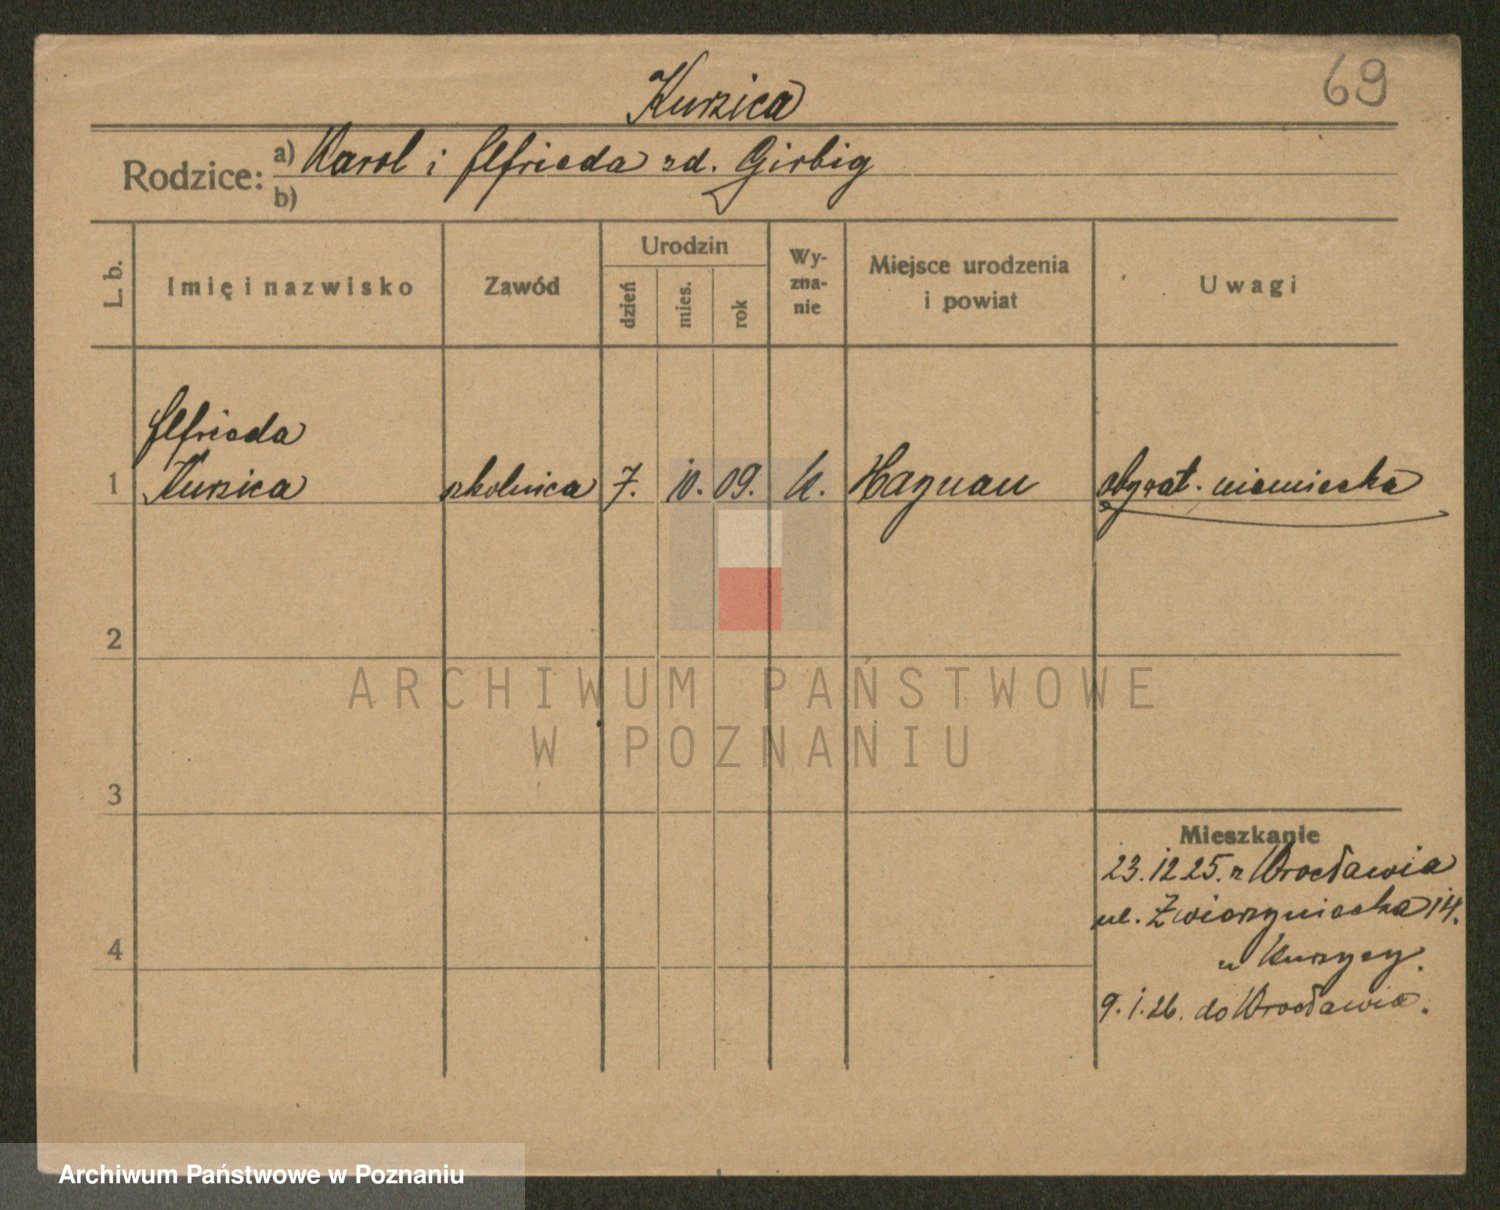 69
Kurzica
Rodzice: a) Karol i Elfrieda zd. Girbig
b)
L. b.
Imię i nazwisko
Zawód
Urodzin
dzień
mies.
rok
Wy-
zna-
nie
Miejsce urodzenia
i powiat
Uwagi
Elfrieda
1 Kurzica szkolnica 7. 10. 09. k. Haynau obywat. niemiecka
2
3
4
Mieszkanie
23.12.25. z Wrocławia
ul. Zwierzyniecka 14.
u Kurzycy.
9.1.26. do Wrocławia.
ARCHIWUM PAŃSTWOWE
W POZNANIU
Archiwum Państwowe w Poznaniu